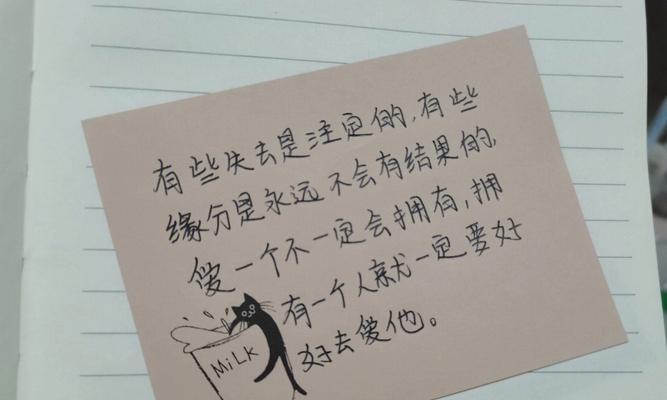 有些失去是注定的,有些
缘分是永远不会有结果的,
爱一个不一定会拥有,拥
有一个人就一定要好
好去爱他。
MiLK